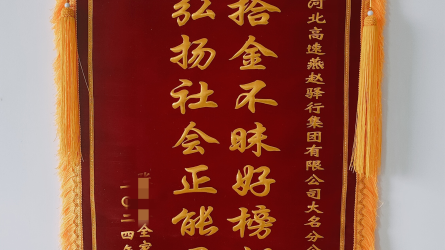 河北高速燕赵驿行集团有限公司大名分
拾金不昧好榜
弘扬社会正能
全家
二〇二四年